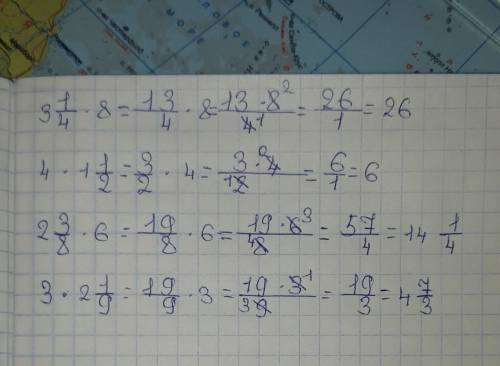 3 1/4 · 8 = 13/4 · 8 = 13 · 8²/4¹ = 26/1 = 26
4 · 1 1/2 = 3/2 · 4 = 3 · ²4/12 = 6/1 = 6
2 3/8 · 6 = 19/8 · 6 = 19 · 6³/48 = 57/4 = 14 1/4
3 · 2 1/9 = 19/9 · 3 = 19 · 3¹/39 = 19/3 = 4 7/3